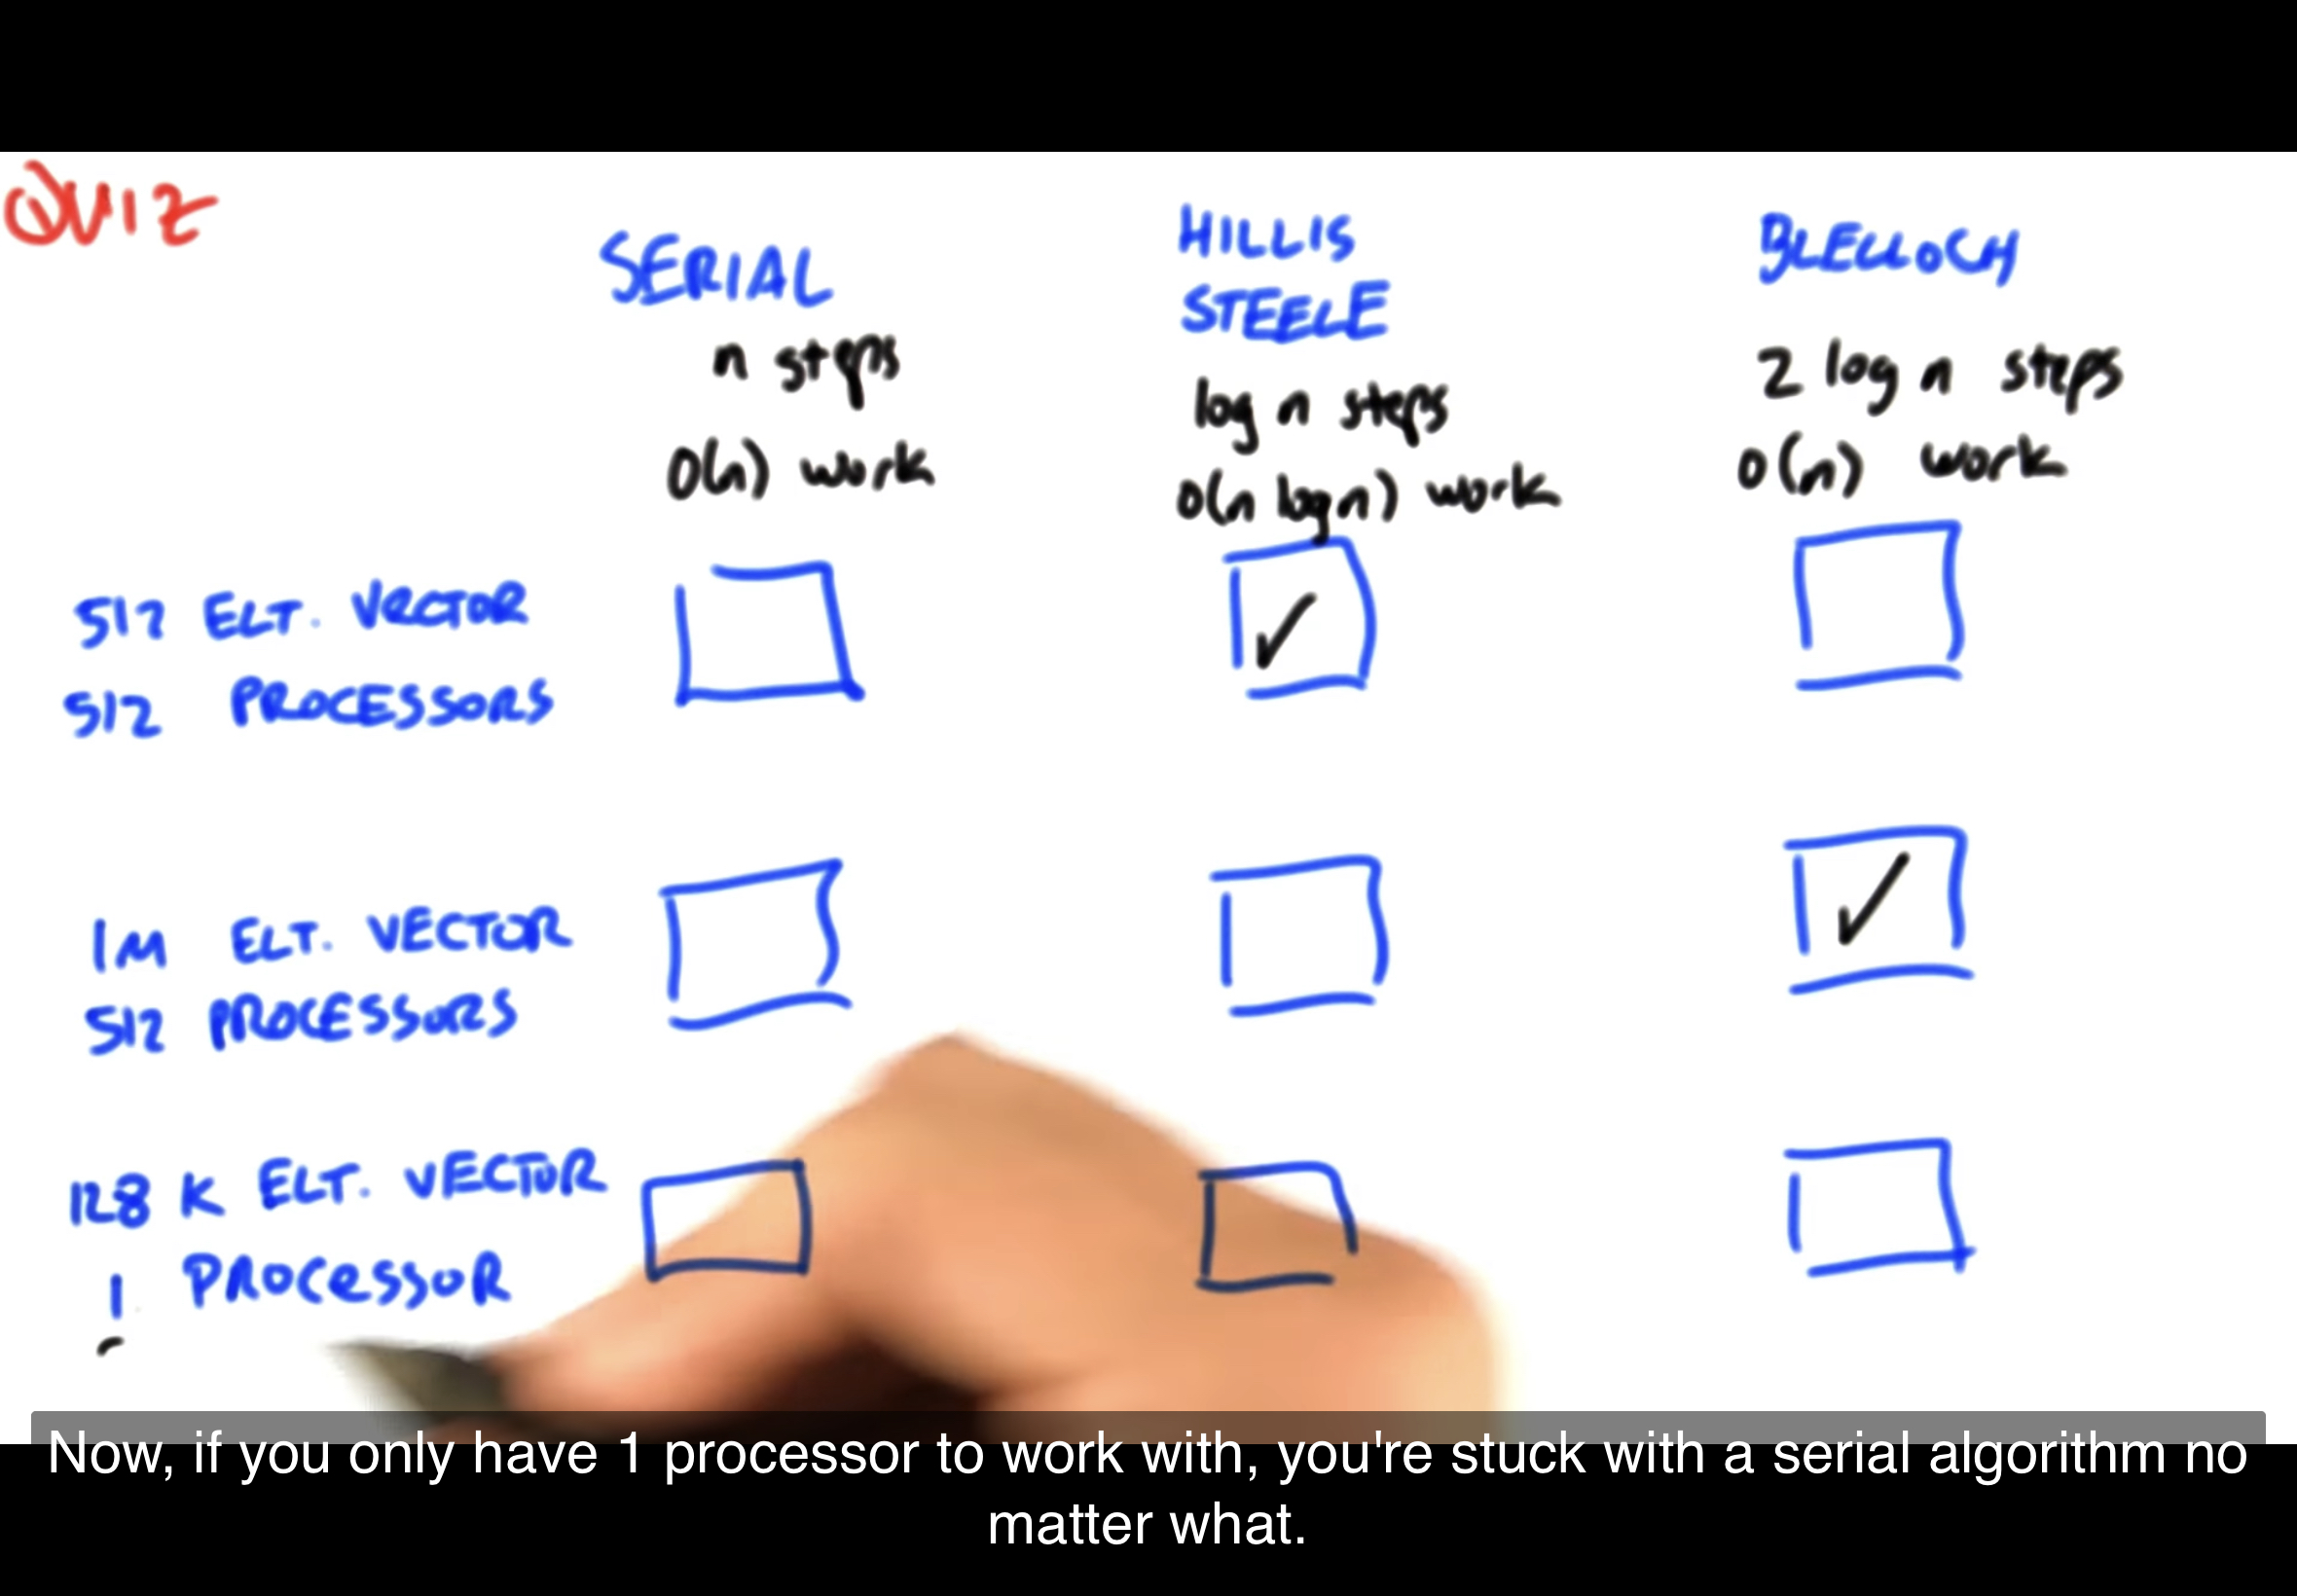 QUIZ
SERIAL
HILLIS
STEELE
BLELLOCH
n steps
O(n) work
log n steps
O(n log n) work
2 log n steps
O(n) work
512 ELT. VECTOR
512 PROCESSORS
1M ELT. VECTOR
512 PROCESSORS
128 K ELT. VECTOR
1 PROCESSOR
Now, if you only have 1 processor to work with, you're stuck with a serial algorithm no
matter what.